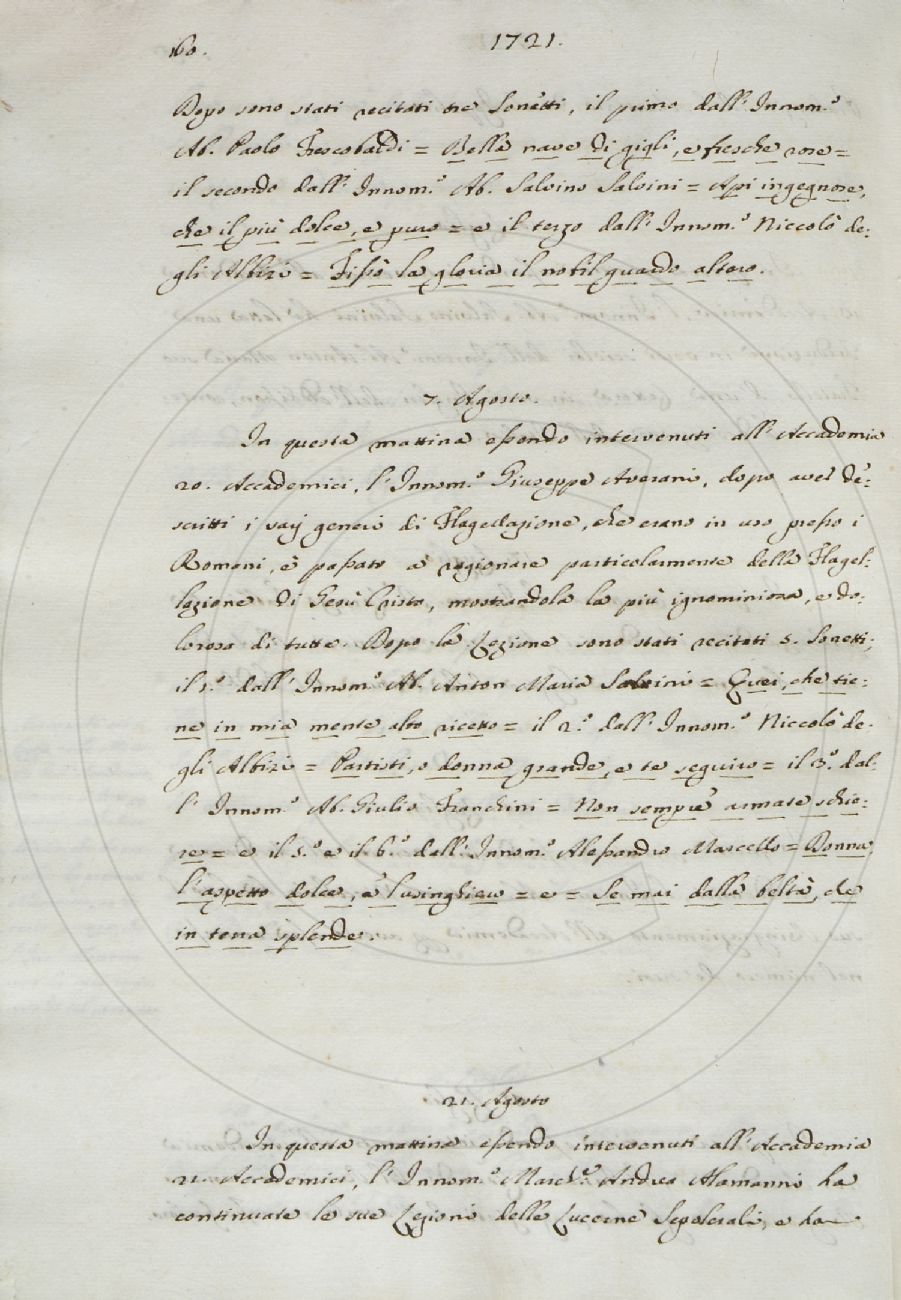 160.
1721.
Dopo sono stati recitati tre Sonetti, il primo dall' Innom.º
Ab. Paolo Frescobaldi = Bella nave di gigli, e fresche rose =
il secondo dall' Innom.º Ab. Salvino Salvini = Api ingegnose,
che il più dolce, e puro = e il terzo dall' Innom.º Niccolò de:
gli Albizi = Fissò la gloria il nobil guardo altero.
7. Agosto.
In questa mattina essendo intervenuti all' Accademia
20. Accademici, l' Innom.º Giuseppe Averani, dopo aver de:
scritti i varj generi di Flagellazione, che erano in uso presso i
Romani, è passato a ragionare particolarmente della Flagel:
lazione di Gesù Cristo, mostrandola la più ignominiosa, e do:
lorosa di tutte. Dopo la Lezione sono stati recitati 5. Sonetti;
il 1.º dall' Innom.º Ab. Anton Maria Salvini = Quei, che tie:
ne in mia mente alto ricetto = il 2.º dall' Innom.º Niccolò de:
gli Albizi = Partisti, o donna grande, e te seguiro = il 3.º dal:
l' Innom.º Ab. Giulio Franchini = Non sempre armate schie:
re = e il 5.º e il 6.º dall' Innom.º Alessandro Marcello = Donna,
l' aspetto dolce, e lusinghiero = e = Se mai dalla beltà, che
in terra splende.
21. Agosto
In questa mattina essendo intervenuti all' Accademia
21. Accademici, l' Innom.º March.e Andrea Alamanni ha
continuate le sue Lezioni delle Lucerne Sepolcrali, e ha